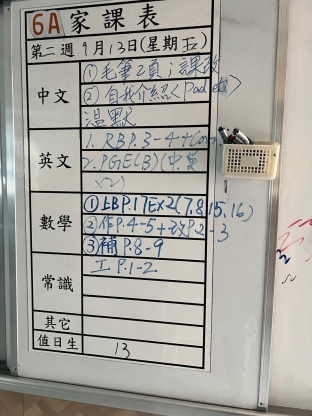 6A 家課表
第二週 9月13日(星期五)
中文
①毛筆2頁;課改
②自我介紹<Padlet>
温默
英文
1. RB P.3-4 + Corr.
2. PGE(B)(中英
x2)
數學
①上BP.17Ex2(7.8.15.16)
②作P.4-5+改P.2-3
③補P.8-9
常識
工P.1-2
其它
值日生
13